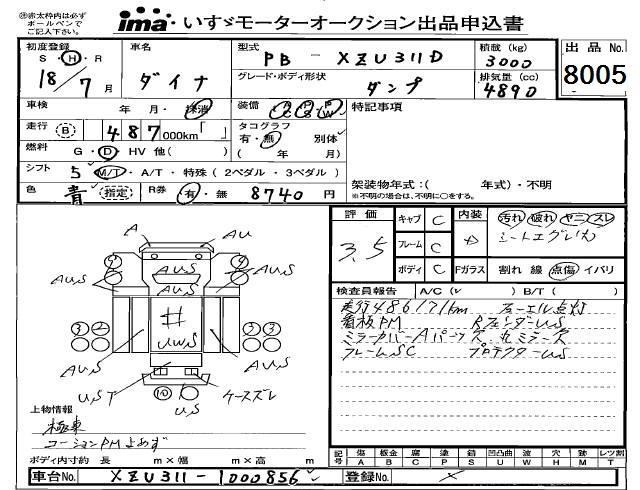 ㊟赤太枠内は必ず
ボールペンで
ご記入下さい。
ima いすゞモーターオークション出品申込書
初度登録 S・H・R 18/7月
車名 ダイナ
型式 PB-XZU311D
積載 (kg) 3000
出品 No. 8005
グレード・ボディ形状 ダンプ
排気量 (cc) 4890
車検 年 月・抹消
装備 AC PS PW
特記事項
走行 B 487,000km「 」
タコグラフ 有・無 別体
( 年 月)
燃料 G・D・HV 他( )
シフト 5 M/T・A/T・特殊(2ペダル・3ペダル)
架装物年式:( 年式)・不明
※不明の場合は、不明に○をする。
色 青 指定 R券 有・無 8740円
評価 3.5
キャブ C
フレーム C
ボディ C
内装 D
汚れ 破れ ヤニ スレ
シートエグレ
Fガラス 割れ 線 点傷 イバリ
検査員報告 A/C( ) B/T( )
走行486171km フューエル点灯
看板PM RフェンダーU.S
ミラーカバーAパーツ欠 丸ミラー欠
フレームSC プロテクターU.S
A
AU
AU,S
AU,S
AU,S
AU,S
#
UW,S
3 2
3 3
AU,S
AU,S
U,ST
10
U,S
ケースズレ
上物情報
極東
コーションPMよめず
ボディ内寸約 長 m×幅 m×高 m
記号 傷A 板金B 腐C 塗P 錆S 凹凸曲U 波W 穴H 跡M レツ割T
車台No. XZU311-1000856
登録No.